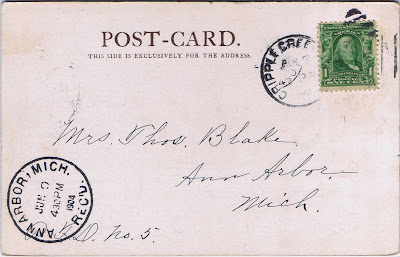 POST-CARD.
THIS SIDE IS EXCLUSIVELY FOR THE ADDRESS.
CRIPPLE CREE
JUN
1
1
Mrs. Thos. Blake.
Ann Arbor.
Mich.
ANN ARBOR, MICH.
JUN
4 30 PM
1904
REC'D.
R.F.D. No. 5.